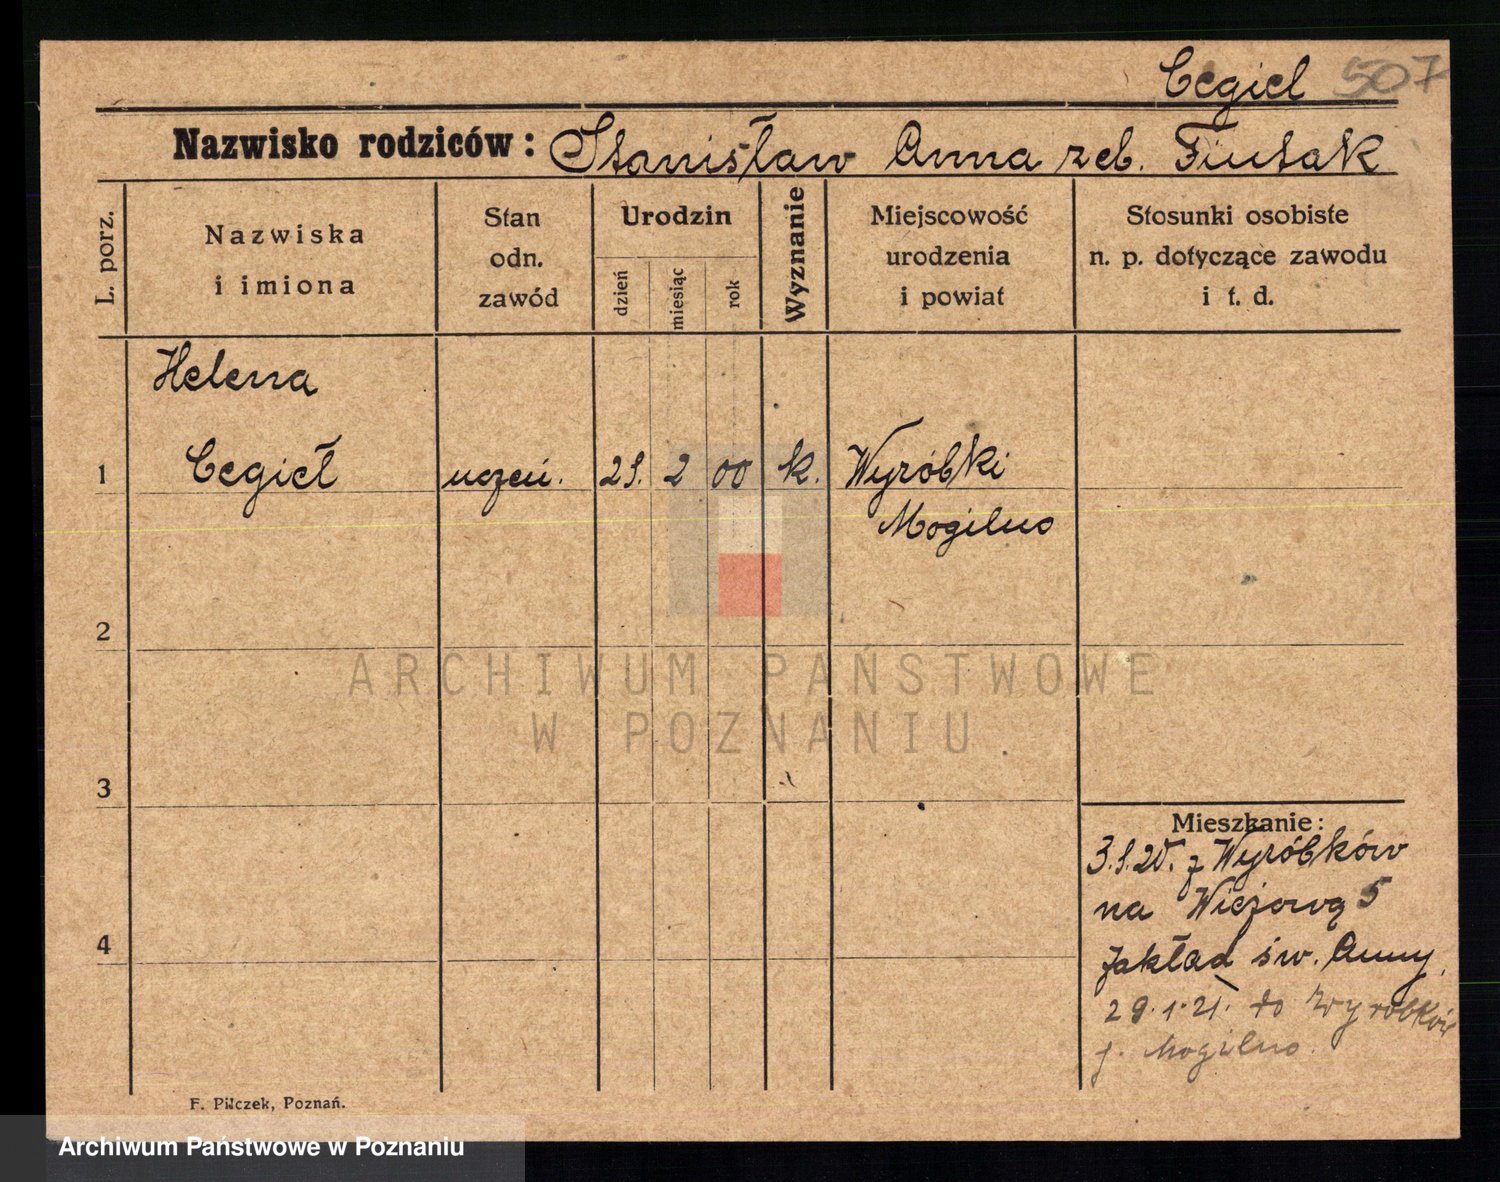 Cegieł 507
Nazwisko rodziców: Stanisław Anna z eb. Fiutak
L. porz.
Nazwiska
i imiona
Stan
odn.
zawód
Urodzin
dzień
miesiąc
rok
Wyznanie
Miejscowość
urodzenia
i powiat
Stosunki osobiste
n. p. dotyczące zawodu
i t. d.
Helena
1 Cegieł uczeń. 29. 2 00 k. Wyróbki
Mogilno
2
3
4
Mieszkanie:
z Wyróbków
na Wieżową 5
Zakład św. Anny
29.1.21. do Wyrobków
p. Mogilno.
F. Pilczek, Poznań.
ARCHIWUM PAŃSTWOWE
W POZNANIU
Archiwum Państwowe w Poznaniu